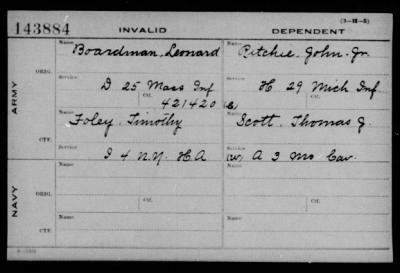 143884 INVALID DEPENDENT (3-H-5)
ARMY
ORIG.
Name Boardman, Leonard Name Ritchie, John, Jr.
Service D 25 Mass Inf Service H 29 Mich Inf
Ctf. 421420 Ctf.
CTF.
Name Foley, Timothy Name Scott, Thomas J.
Service I 4 N.Y. H A Service (W) A 3 Mo Cav.
NAVY
ORIG.
Name Name
Ctf. Ctf.
CTF.
Name Name